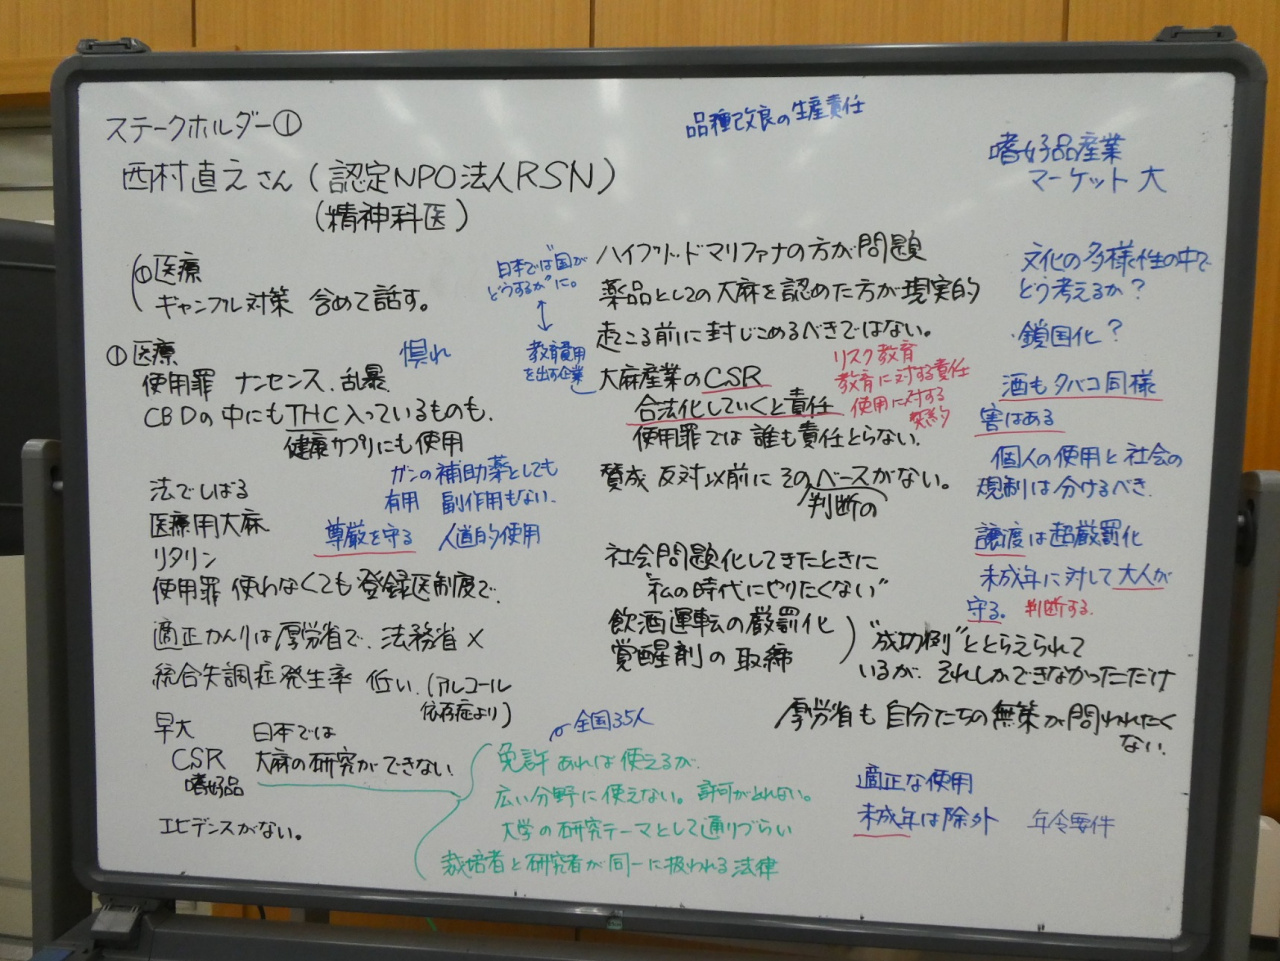 ステークホルダー①
西村直えさん(認定NPO法人RSN)
(精神科医)
①医療
ギャンブル対策 含めて話す。
①医療
使用罪 ナンセンス、乱暴
惧れ
CBDの中にもTHC入っているものも。
健康サプリにも使用
法でしばる
医療用大麻
リタリン
ガンの補助薬としても
有用 副作用もない。
尊厳を守る 人道的使用
使用罪 使わなくても登録医制度で。
適正かんりは厚労省で、法務省×
統合失調症発生率 低い。(アルコール
依存症より)
早大
CSR
嗜好品
日本では
大麻の研究ができない
エビデンスがない。
全国35人
免許あれば使えるが、
広い分野に使えない。許可がとれない。
大学の研究テーマとして通りづらい
栽培者と研究者が同一に扱われる法律
品種改良の生産責任
日本では"国が
どうするか"に。
教育費用
を出す企業
ハイブリッドマリファナの方が問題
薬品としての大麻を認めた方が現実的
起こる前に封じこめるべきではない。
大麻産業のCSR
リスク教育
教育に対する責任
使用に対する
契約
合法化していくと責任
使用罪では誰も責任とらない。
賛成 反対以前にそのベースがない。
判断の
社会問題化してきたときに
"私の時代にやりたくない"
飲酒運転の厳罰化
覚醒剤の取締
"成功例"ととらえられて
いるが、それしかできなかっただけ
厚労省も自分たちの無策が問われたく
ない。
適正な使用
未成年は除外 年令要件
嗜好品産業
マーケット 大
文化の多様性の中で
どう考えるか?
・鎖国化?
酒もタバコ同様
害はある
個人の使用と社会の
規制は分けるべき。
譲渡は超厳罰化
未成年に対して大人が
守る。判断する。